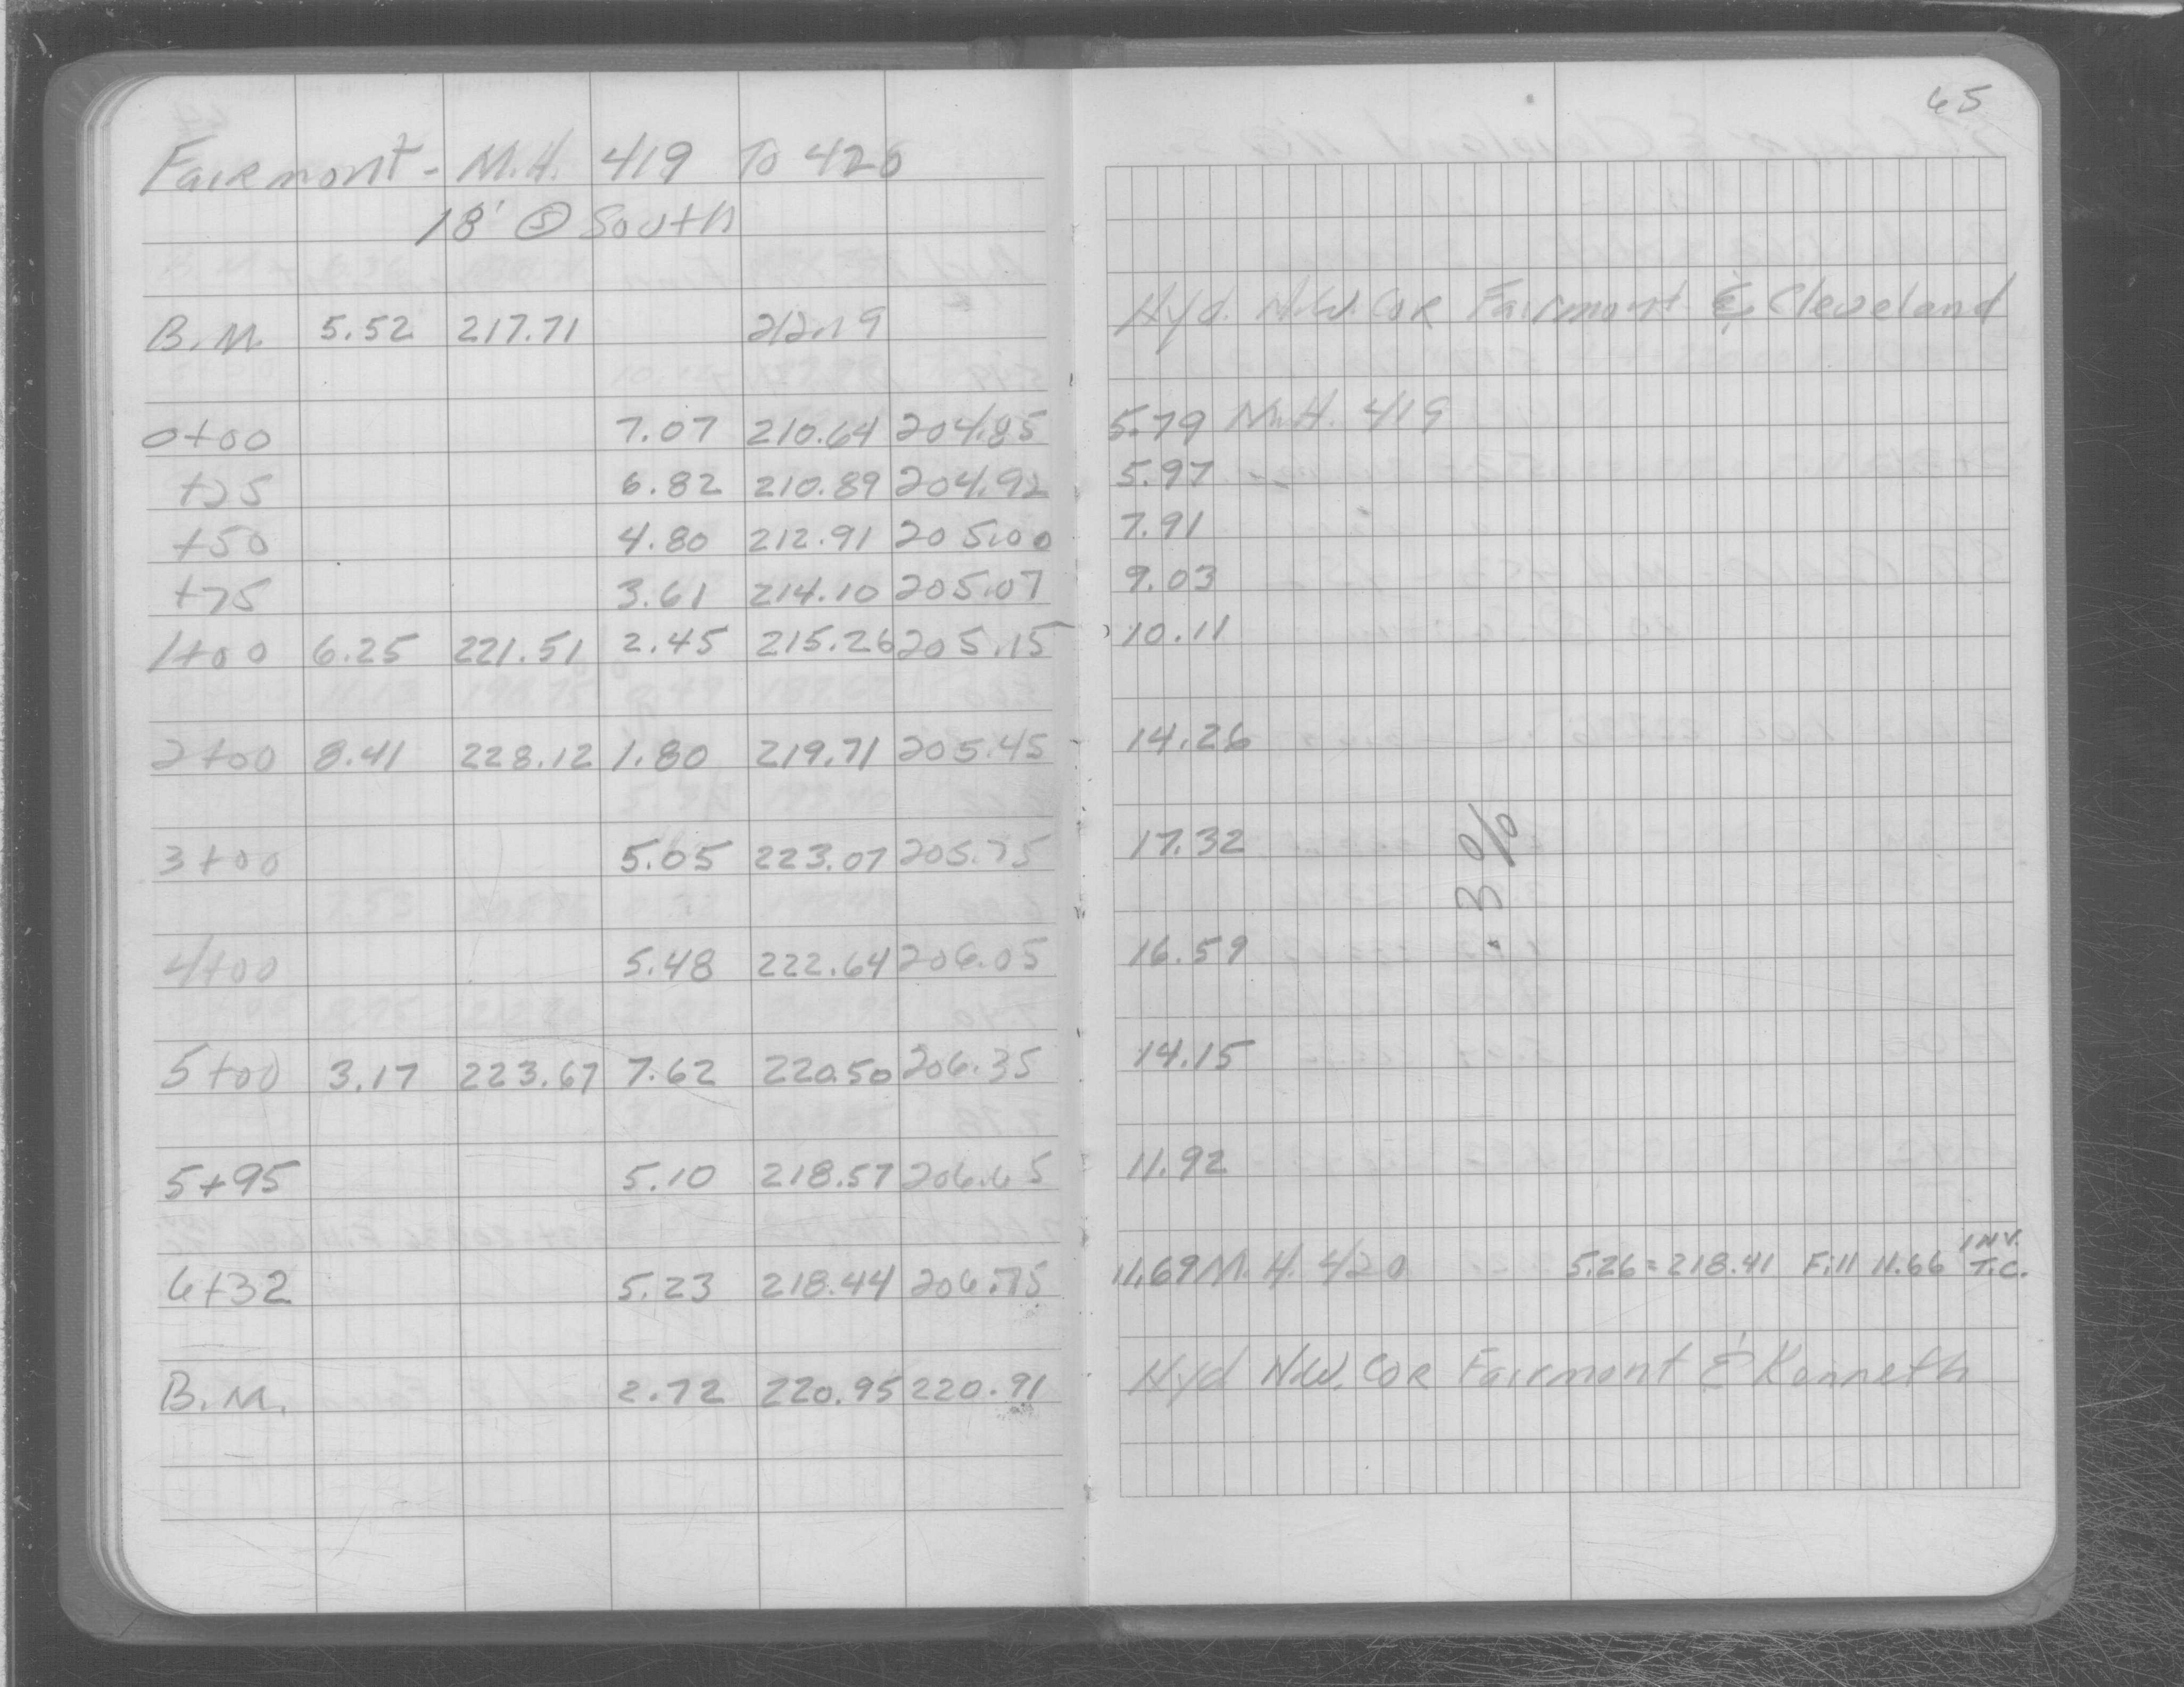 65
Fairmont - M.H. 419 To 420
18' Ⓢ South
B.M. 5.52 217.71 212.19 Hyd. N.W. Cor Fairmont & Cleveland
0+00 7.07 210.64 204.85 5.79 M.H. 419
+25 6.82 210.89 204.92 5.97
+50 4.80 212.91 205.00 7.91
+75 3.61 214.10 205.07 9.03
1+00 6.25 221.51 2.45 215.26 205.15 10.11
2+00 8.41 228.12 1.80 219.71 205.45 14.26
3+00 5.05 223.07 205.75 17.32
.3%
4+00 5.48 222.64 206.05 16.59
5+00 3.17 223.67 7.62 220.50 206.35 14.15
5+95 5.10 218.57 206.65 11.92
6+32 5.23 218.44 206.75 11.69 M.H. 420 5.26 = 218.41 Fill 11.66 INV. T.C.
B.M. 2.72 220.95 220.91 Hyd N.W. Cor Fairmont & Kenneth